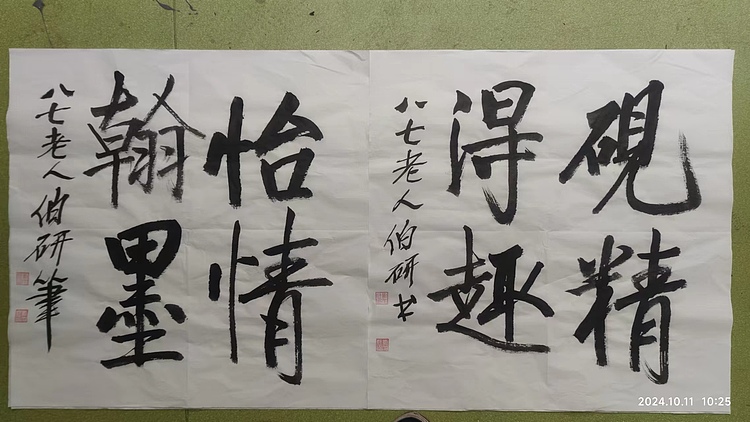 砚精
得趣
八七老人伯研书
怡情
翰墨
八七老人伯研筆
2024.10.11 10:25